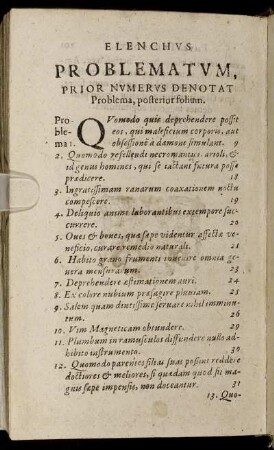 ELENCHVS
PROBLEMATVM,
PRIOR NVMERVS DENOTAT
Problema, posterior folium.
Problema 1. QVomodo quis deprehendere possit
eos, qui maleficium corporis, aut
obsessionē à dæmone simulant. 9
2. Quomodo refellendi necromantici, arioli, &
id genus homines, qui se iactant futura posse
prædicere. 18
3. Ingratissimam ranarum coaxationem noctu
compescere. 19
4. Deliquio animæ laborantibus extempore suc-
currere. 20
5. Oues & boues, quæ sæpe videntur affecta ve-
neficio, curare remedio naturali. 21
6. Habito grano frumenti inuenire omnia ge-
nera mensurarum. 23
7. Deprehendere æstimationem auri. 24
8. Ex colore nubium præsagire pluuiam. 25
9. Salem quam diutissime seruare nihil imminu-
tum. 26
10. Vim Magneticam obtundere. 29
11. Plumbum in ramusculos diffundere nullo ad-
hibito instrumento. 30
12. Quomodo parentes filias suas possint reddere
doctiores & meliores, si quædam quæ sis ma-
gnis sæpe impensis, non doceantur. 31
13. Quo-